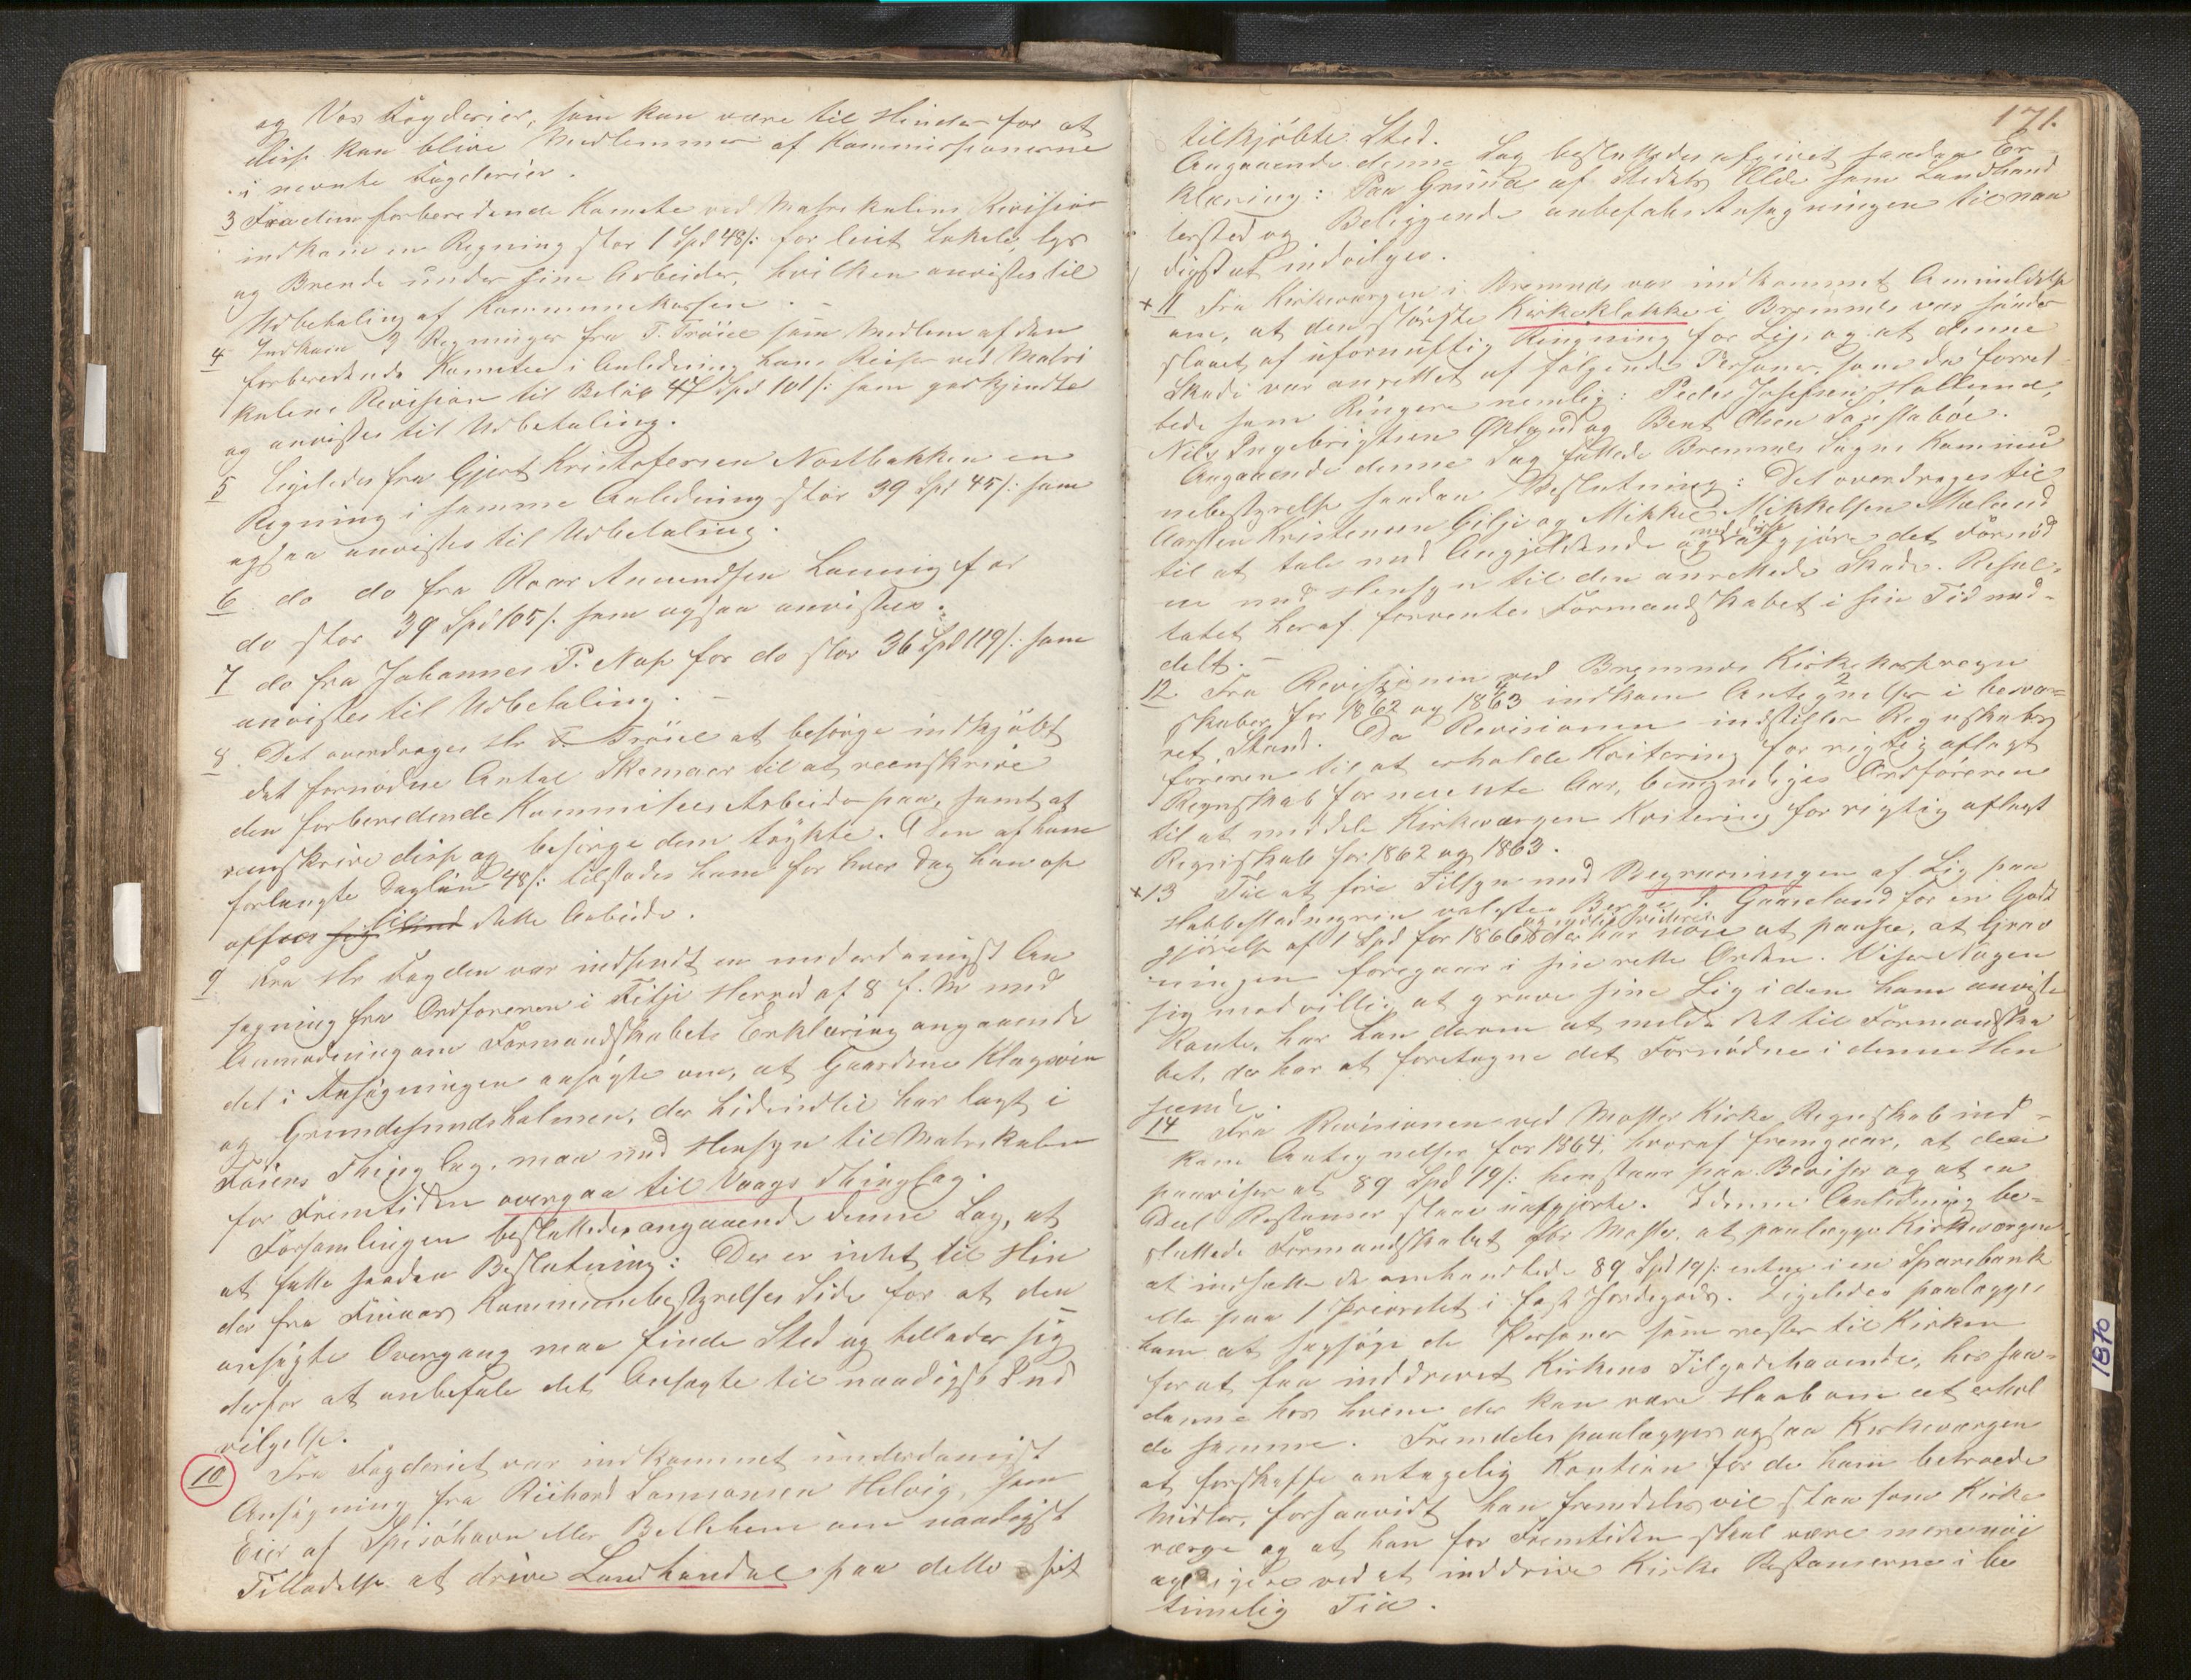 og Vos Fogderier, som kan være til Hinder for at
disse kan blive Medlemmer af Kommissionerne
i nævnte Fogderier.
3 Fra den forberedende Komite ved Matrikulens Revision
indkom en Regning stor 1 Spd 48 /: for leiet Lokale, lys
og Brænde under sine Arbeider, hvilken anvistes til
Udbetaling af Kommunekassen. -
4 Indkom 3 Regninger fra T. Tröiel som Medlem af den
forberedende Komitee i Anledning hans Reiser ved Matri
kulens Revision til Belöb 47 Spd 101 /: som godkjendtes
og anvistes til Udbetaling.
5 Ligeledes fra Gjert Kristofersen Nordbakken en
Regning i samme Anledning stor 39 Spd 45 /: som
ogsaa anvistes til Udbetaling.
6 do do fra Roar Amundsen Lønning for
do stor 39 Spd 105 /. som ogsaa anvistes.
7 do fra Johannes P. Næss for do stor 36 Spd 119 /: som
anvistes til Udbetaling. -
8. Det overdrages Hr T. Tröiel at besörge indkjöbt
det fornødne Antal Skemaer til at reenskrive
den forberedende Kommitees Arbeide paa, samt at
reenskrive disse og besörge dem trykte. Den af ham
forlangte Daglön 48 /: tilstodes ham for hver Dag han op
offrer sig til med dette Arbeide.
9 Fra Hr Fogden var indsendt en underdanigst An
søgning fra Ordføreren i Fitje Herred af 8 f. M med
Anmodning om Formandskabets Erklæring angaaende
det i Ansögningen ansögte om, at Gaardene Klagsvin
og Grundesundsholmen, der hidindtil har lagt i
Föiens Thinglag, maa med Hensyn til Matrikulen
for Fremtiden overgaa til Vaags Thinglag.
Forsamlingen besluttedes angaaende denne Sag, at
at fatte saadan Beslutning: Der er intet til Hin
der fra Finaas Kommunebestyrelses Side for at den
ansögte Overgang maa finde Sted og tillader sig
derfor at anbefale det Ansøgte til naadigst Ind
vilgelse.
10 Fra Fogderiet var indkommet underdanigst
Ansögning fra Richard Samsonsen Helvig, som
Eier af Spisöhavn eller Betlehem om naadigst
Tilladelse at drive Landhandel paa dette sit
171.
tilkjöbte Sted.
Angaaende denne Sag besluttedes afgivet saadan Er
klæring: Paa Grund af Stedets Ælde som Landhand
lersted og Beliggende anbefales Ansøgningen til naa
digst at indvilges.
+ 11 Fra Kirkevergen i Bremnes var indkommet Anmeldelse
om, at den störste Kirkeklokke i Bremnes var sönder
slaaet af ufornuftig Ringning for Lig, og at denne
Skade var anrettet af fölgende Personer, som da forret
tede som Ringere nemlig: Peder Josefsen Hollund,
Nils Ingebrigtsen Økland og Bent Olsen Særstaböe.
Angaaende denne Sag fattede Bremnes Sogns Kommu
nebestyrelse saadan Beslutning: Det overdrages til
Aarsten Kristensen Gilje og Mikkel Mikkelsen Mæland
til at tale med Angjeldende og med disse afgjöre det Fornöd
ne med Hensyn til den anrettede Skade. Resul-
tatet heraf forventes Formandskabet i sin Tid med-
delt. -
12 Fra Revisionen ved Bremnes Kirkes Regn
skaber for 1862 og 1863 indkom Antegnelser i besva-
ret Stand. Da Revisionen indstiller Regnskabs
föreren til at erholde Kvitering for rigtig aflagt
Regnskab for nævnte Aar, bemyndiges Ordföreren
til at meddele Kirkevergen Kvitering for rigtig aflagt
Regnskab for 1862 og 1863.
+ 13 Til at före Tilsyn med Begravningen af Lig paa
Habbestadmyren valgtes Berge T. Gaaseland for en Godt
gjörelse af 1 Spd for 1866 der har nöie at paasee, at Grav
ningen foregaar i sin rette Orden. Viser Nogen
sig modvillig at grave sine Lig i den ham anviste
Rante, har han derom at melde det til Formandska
bet, der har at foretagne det Fornödne i denne Hen
seende.
14 Fra Revisionen ved Moster Kirkes Regnskab ind-
kom Antegnelser for 1864, hvoraf fremgaar, at den
paaviser at 89 Spd 19 /: henstaar paa Beviser og at en
Deel Restancer staar uafgjorte. I denne Anledning be-
sluttede Formandskabet for Moster, at paalægge Kirkevergen
at indsætte de omhandlede 89 Spd 19 /: enten i en Sparebank
eller paa 1 Prioritet i fast Jordegods. Ligeledes paalægges
ham at sagsöge de Personer som rester til Kirken
for at faa inddrevet Kirkens Tilgodehavende, hos saa-
danne hos hvem der kan være Haab om at erhol
de samme. Fremdeles paalægges ogsaa Kirkevergen
at forskaffe antagelig Kaution for de ham betroede
Midler, forsaavidt han fremdeles vil staa som Kirke
verge og at han for Fremtiden skal være mere nöi
agtigere ved at inddrive Kirke Restancerne i be
timelig Tid.
1870